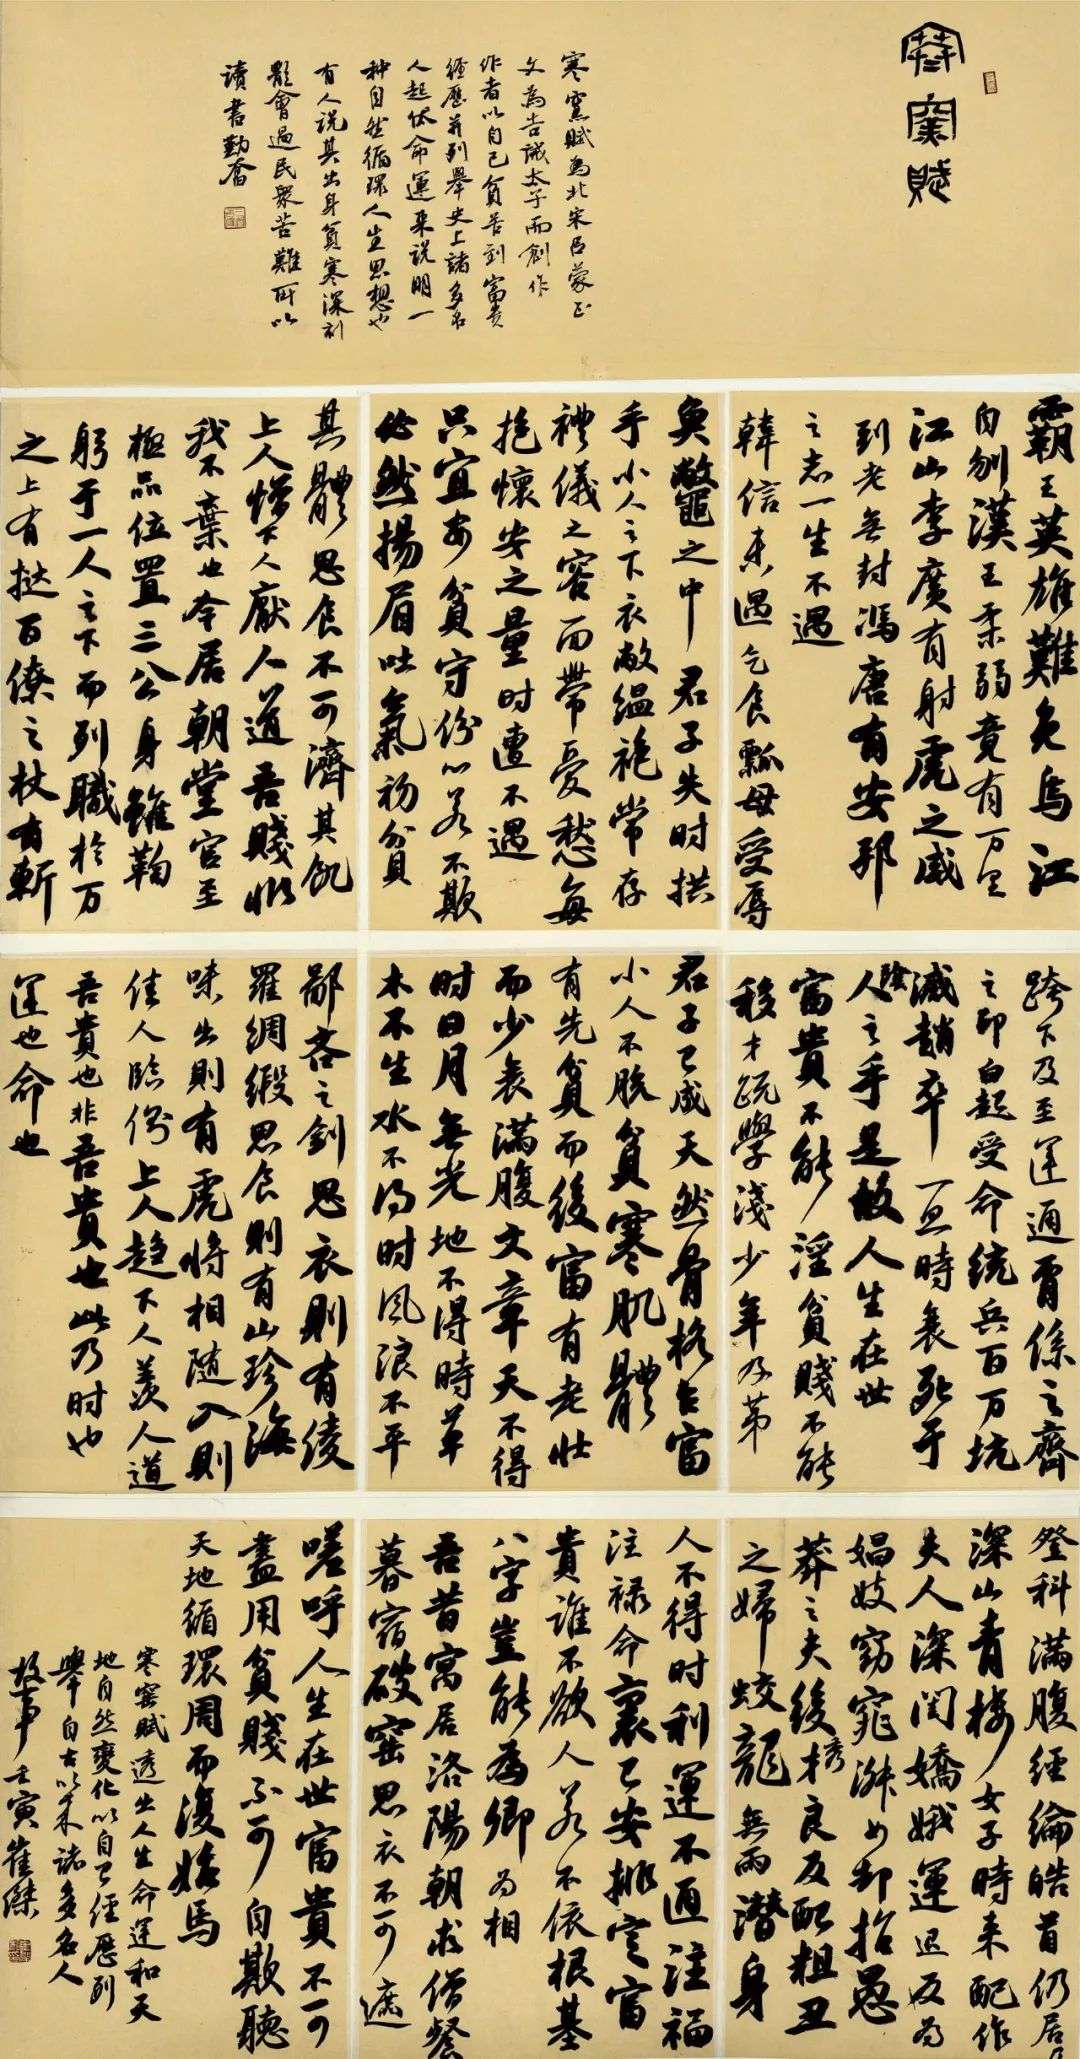 寒窯賦
寒窯賦爲北宋吕蒙正
文爲告誡太子而創作
作者以自己貧苦到富貴
經歷并列舉史上諸多名
人起伏命運来説明一
种自然循環人生思想也
有人説其出身貧寒深刻
體會過民衆苦難所以
讀書勤奮
霸王英雄難免烏江
自刎漢王柔弱竟有万里
江山李廣有射虎之威
到老無封馮唐有安邦
之志一生不遇
韓信未遇乞食瓢母受辱
跨下及至運通胥係之齊
之印白起受命統兵百万坑
滅趙卒一旦時衰死于
陰人之手是故人生在世
富貴不能淫貧賤不能
移才疏學淺少年及第
登科滿腹經綸皓首仍居
深山青楼女子時来配作
夫人深闺嬌娥運退反為
娼妓窈窕淑女却招愚
莽之夫俊秀良反配粗丑
之婦蛟龍無雨潛身
魚鱉之中君子失时拱
手小人之下衣敝緼袍常存
禮儀之容面帶憂愁每
抱懷安之量时遭不遇
只宜安貧守份心若不欺
必然揚眉吐氣初貧
君子已成天然骨格乍富
小人不脱貧寒肌體
有先貧而後富有老壯
而少衰滿腹文章天不得
时日月無光地不得時草
木不生水不得时風浪不平
人不得时利運不通注福
注禄命裏已安排定富
貴誰不欲人若不依根基
八字豈能為卿為相
吾昔寓居洛陽朝求僧餐
暮宿破窑思衣不可遮
其體思食不可濟其飢
上人憎下人厭人道吾賤非
我不棄也今居朝堂官至
極品位置三公身雖鞠
躬于一人之下而列職於万
之上有撻百僚之杖有斬
鄙吝之劍思衣則有綾
羅綢緞思食則有山珍海
味出則有虎將相随入則
佳人臨側上人趋下人羡人道
吾貴也非吾貴也此乃时也
運也命也
嗟呼人生在世富貴不可
盡用貧賤不可自欺聽
天地循環周而復始焉
寒窑賦透出人生命運和天
地自然變化以自己經歷列
舉自古以来諸多名人
故事壬寅崔傑